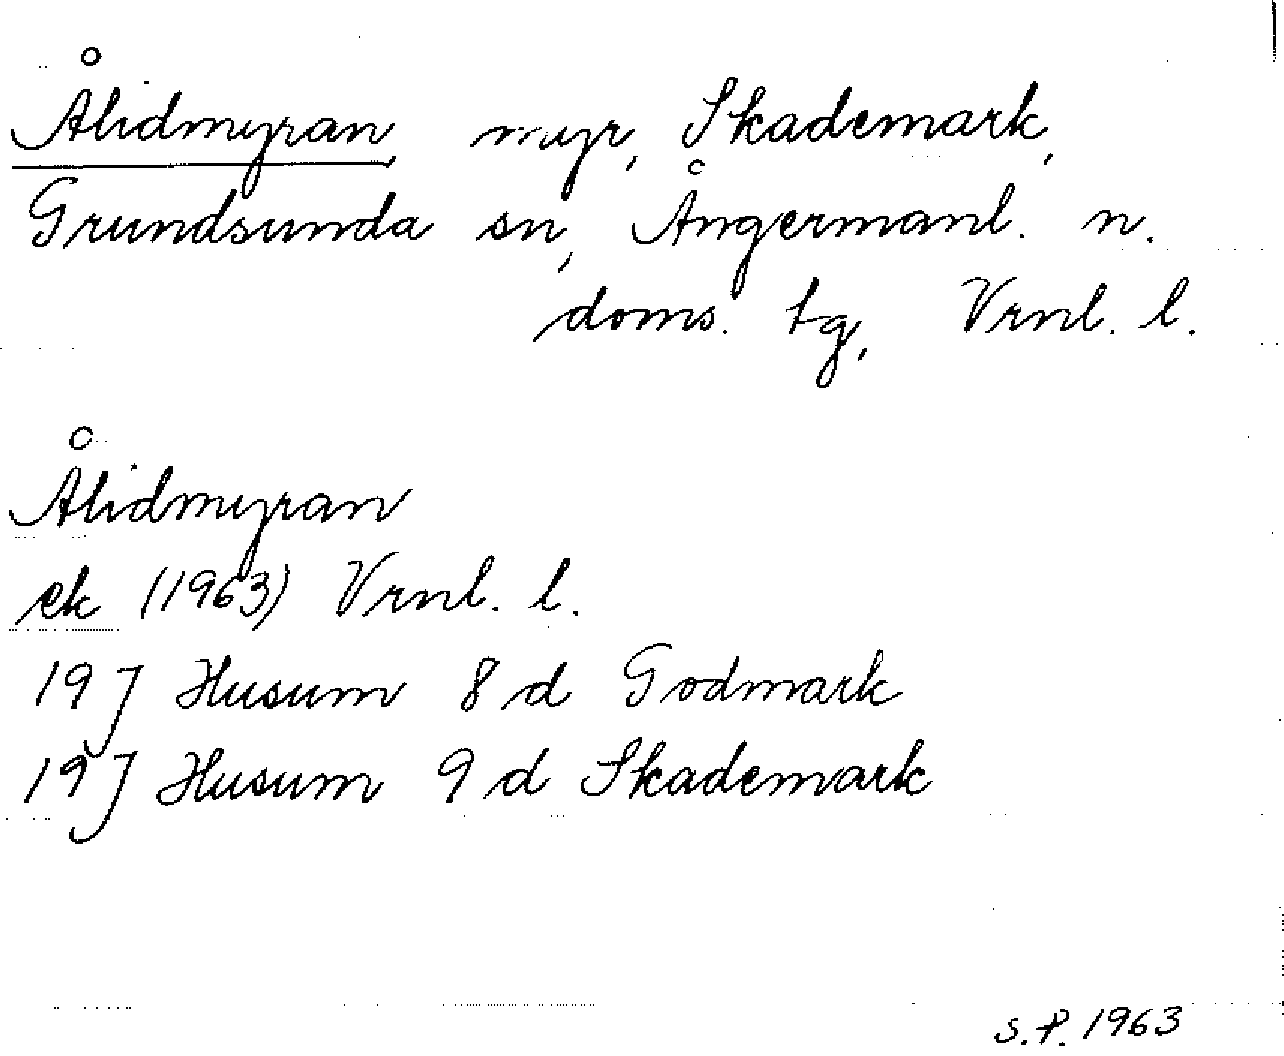 Ålidmyran, myr, Skademark,
Grundsunda sn, Ångermanl. n.
doms. tg, Vrnl. l.
Ålidmyran
ek (1963) Vrnl. l.
19 J Husum 8 d Godmark
19 J Husum 9 d Skademark
S.P. 1963